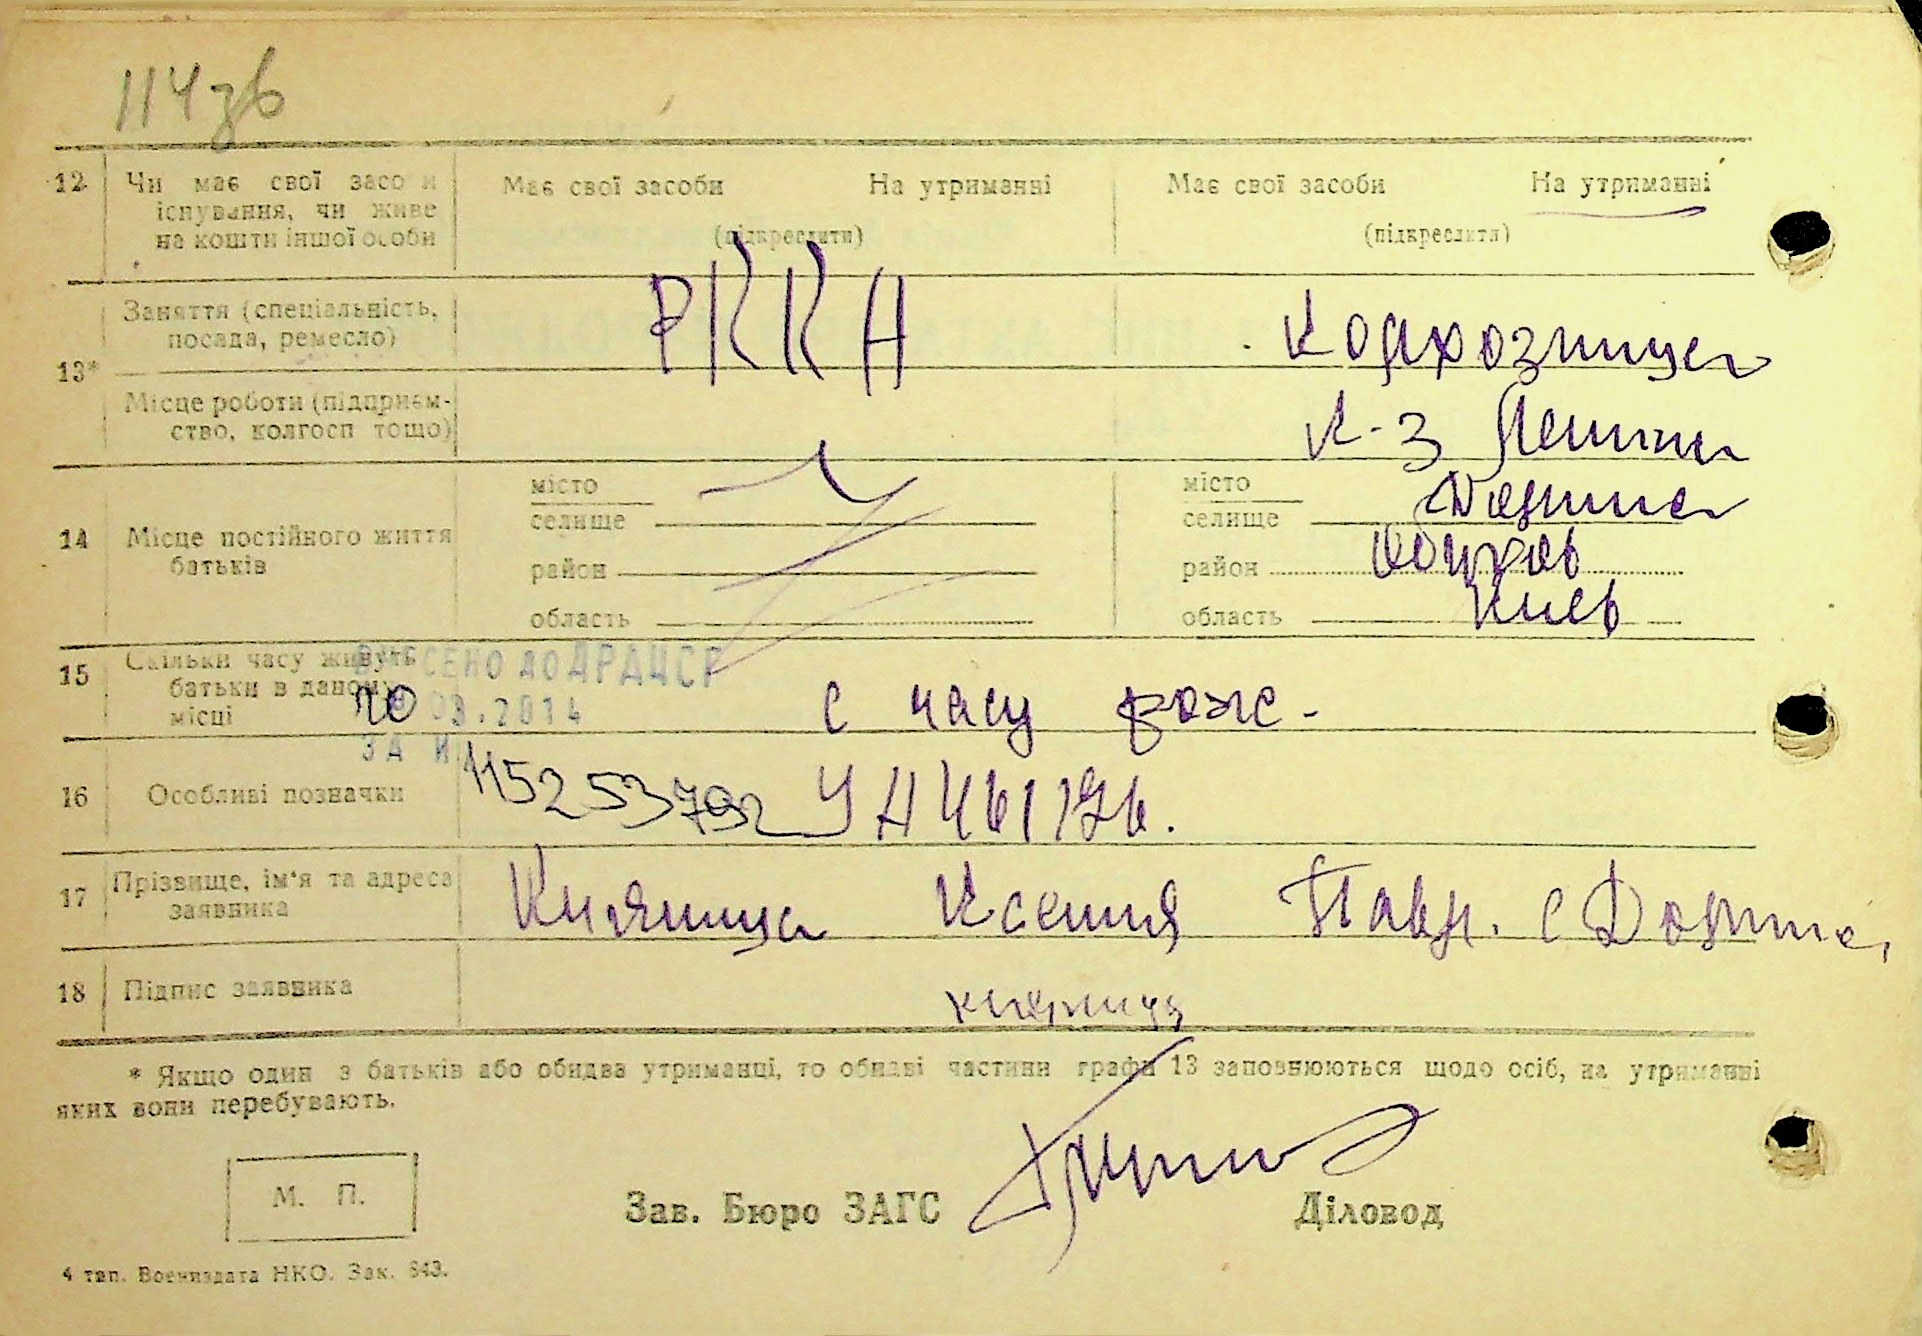 114зв
12 Чи має свої засоби Має свої засоби На утриманні Має свої засоби На утриманні
існування, чи живе
на кошти іншої особи (підкреслити) (підкреслити)
Заняття (спеціальність, РККА Колхозница
посада, ремесло)
13*
Місце роботи (підприєм- К-з Ленина
ство, колгосп тощо)
місто місто
селище селище
14 Місце постійного життя
батьків район район Обухов
область область Киев
15 Скільки часу живуть ВНЕСЕНО до ДРАЦСГ
батьки в даному с часу рож.
місці 03.2014
ЗА
16 Особливі позначки 115253792 УА
17 Прізвище, ім'я та адреса Княница Ксения Павл. с
заявника
18 Підпис заявника
* Якщо один з батьків або обидва утриманці, то обидві частини графи 13 заповнюються щодо осіб, на утриманні
яких вони перебувають.
М. П. Зав. Бюро ЗАГС Діловод
4 тип. Воениздата НКО. Зак. 843.